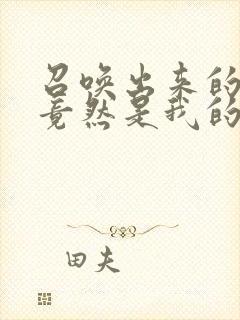 召唤出来的
竟然是我的
田夫